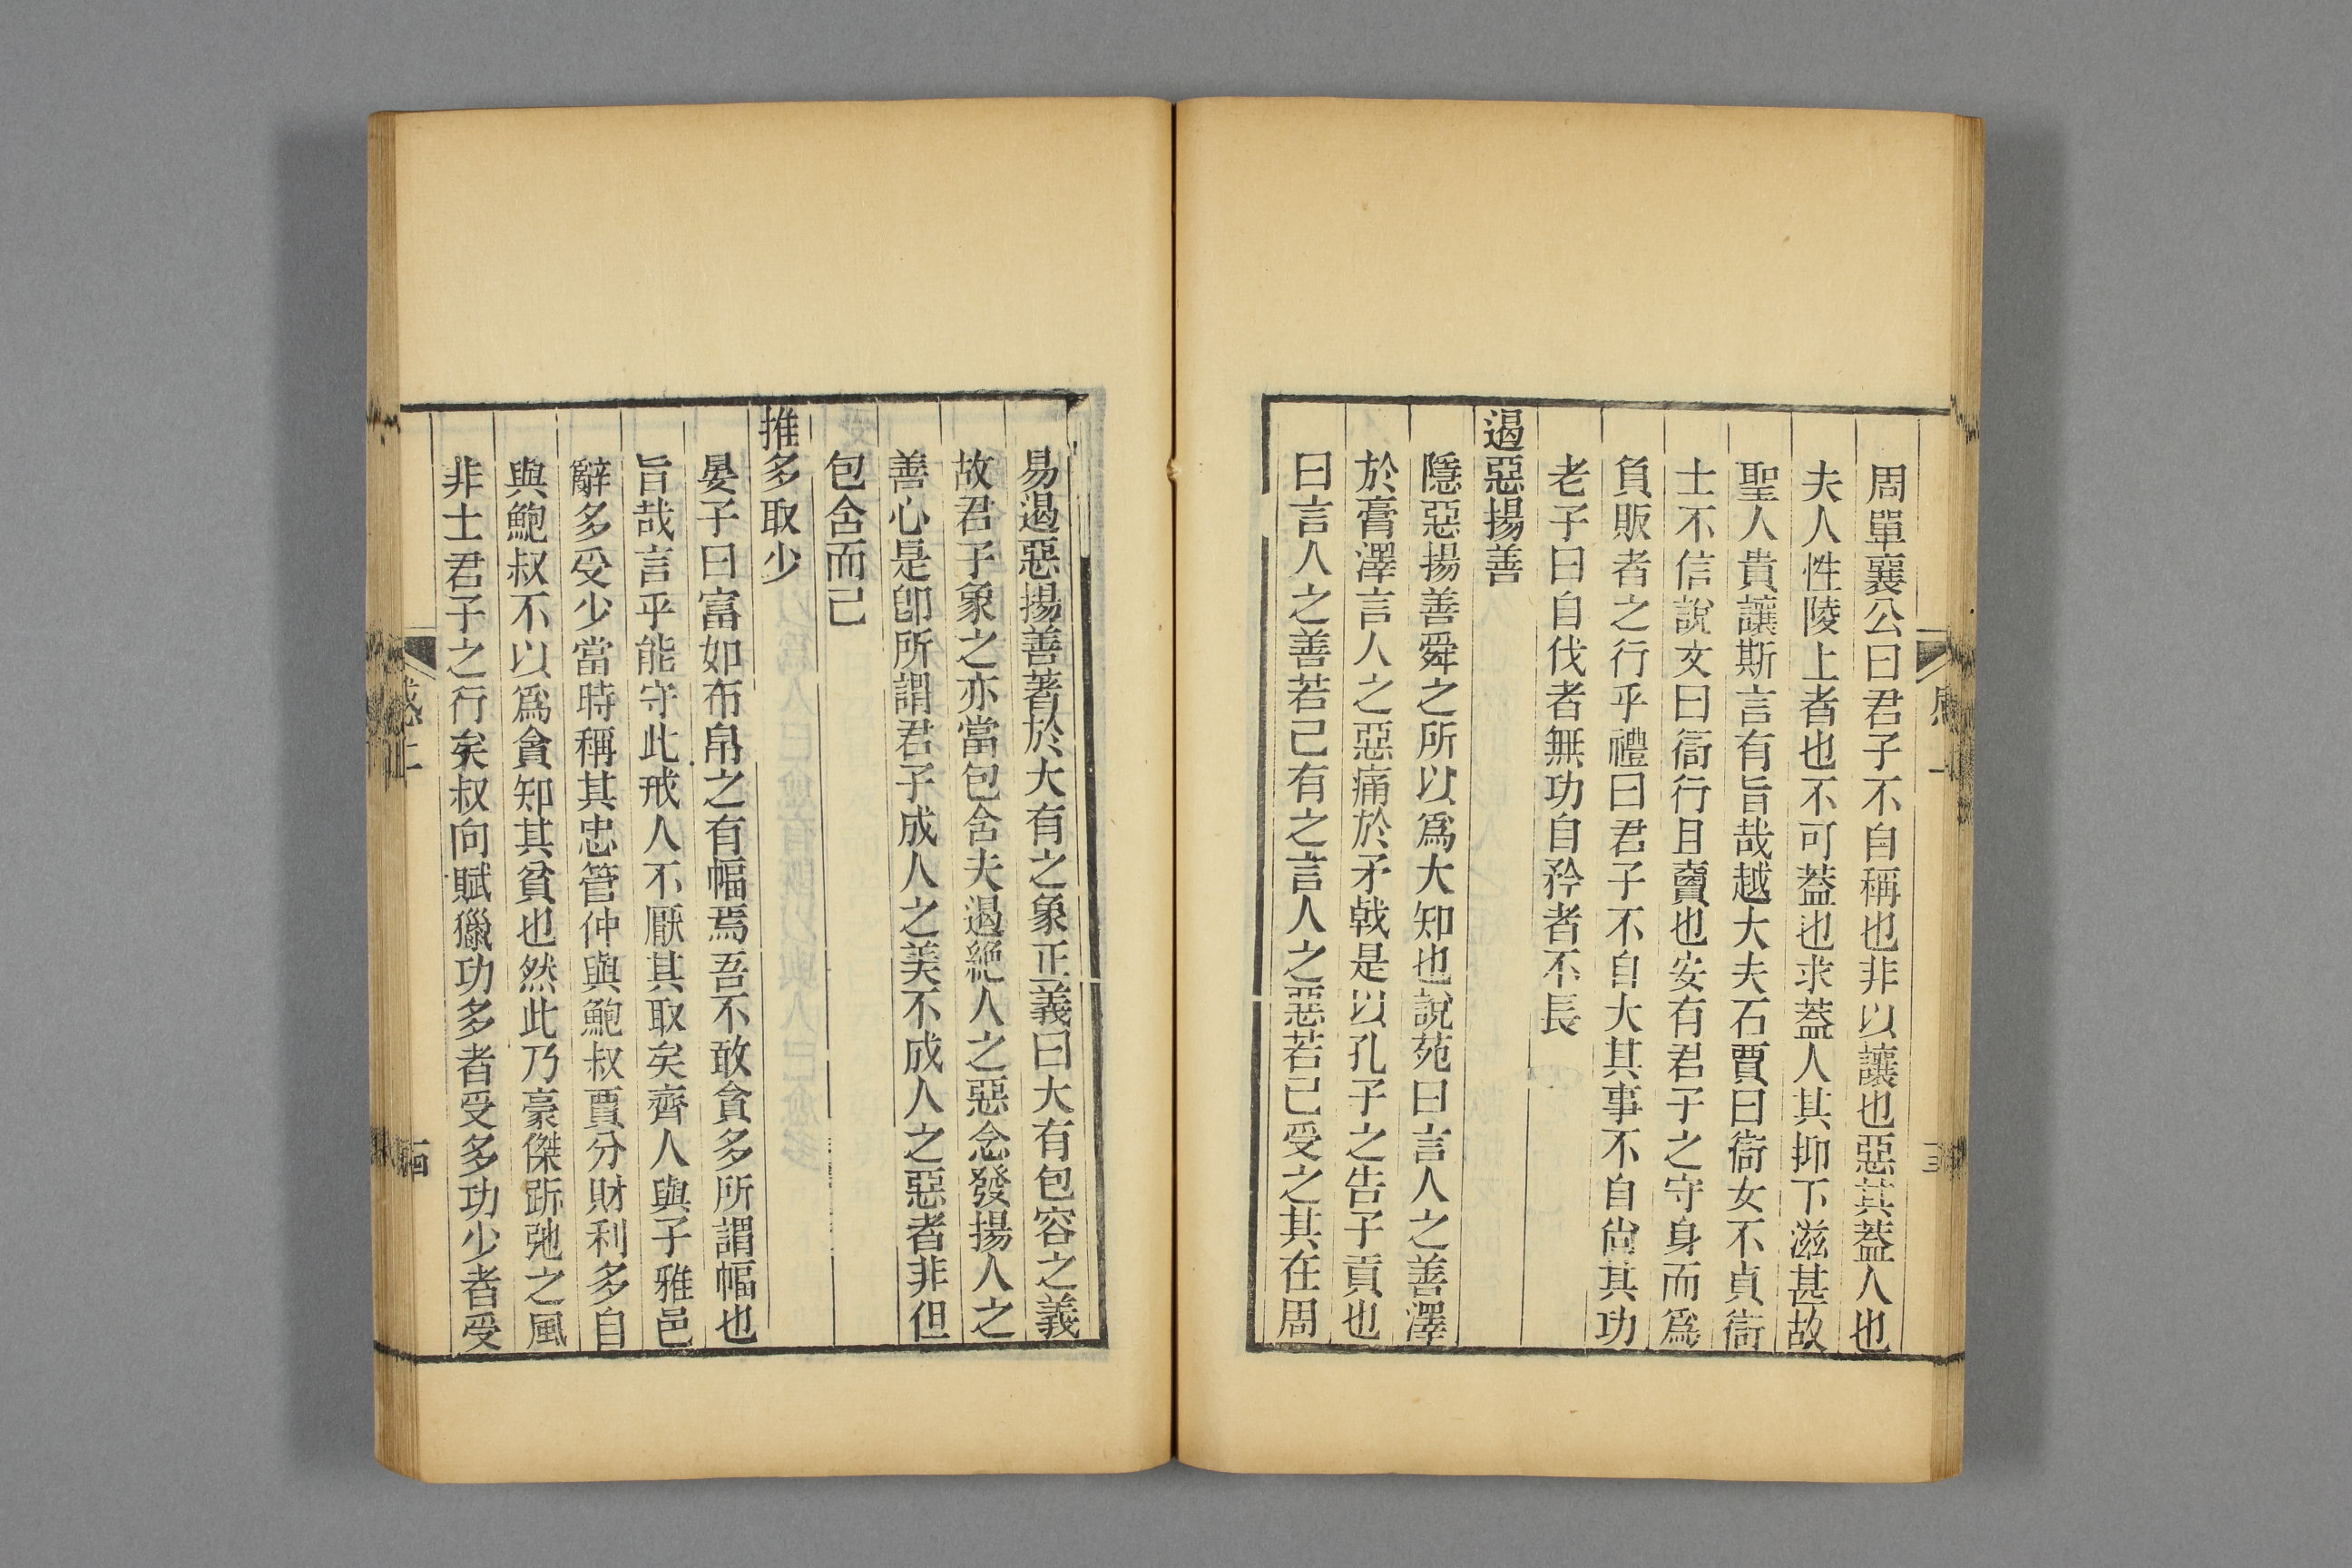 周單襄公曰君子不自稱也非以讓也惡其蓋人也
夫人性陵上者也不可蓋也求蓋人其抑下滋甚故
聖人貴讓斯言有旨哉越大夫石賈曰衒女不貞衒
士不信說文曰衒行且賣也安有君子之守身而爲
負販者之行乎禮曰君子不自大其事不自尙其功
老子曰自伐者無功自矜者不長
遏惡揚善
隱惡揚善舜之所以爲大知也說苑曰言人之善澤
於膏澤言人之惡痛於矛戟是以孔子之告子貢也
曰言人之善若己有之言人之惡若己受之其在周
易遏惡揚善著於大有之象正義曰大有包容之義
故君子象之亦當包含夫遏絕人之惡念發揚人之
善心是卽所謂君子成人之美不成人之惡者非但
包含而已
推多取少
晏子曰富如布帛之有幅焉吾不敢貪多所謂幅也
旨哉言乎能守此戒人不厭其取矣齊人與子雅邑
辭多受少當時稱其忠管仲與鮑叔賈分財利多自
與鮑叔不以爲貪知其貧也然此乃豪傑跅弛之風
非士君子之行矣叔向賦獵功多者受多功少者受
感上